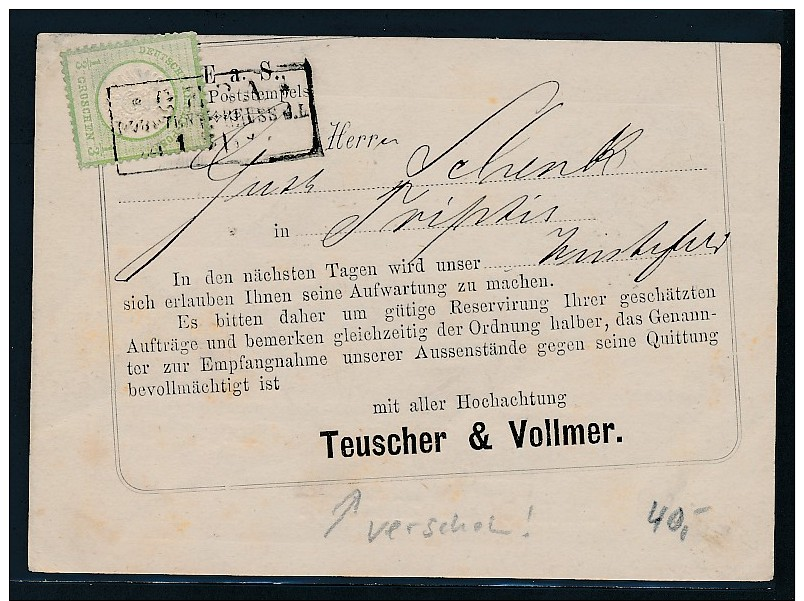 DEUTSCHE
1/3 GROSCHEN 1/3
E a. S.,
GERA
Poststempels
REUSS J.L
1
Herrn
Gust Schenk
in Triptis
In den nächsten Tagen wird unser
sich erlauben Ihnen seine Aufwartung zu machen.
Es bitten daher um gütige Reservirung Ihrer geschätzten
Aufträge und bemerken gleichzeitig der Ordnung halber, das Genann-
ter zur Empfangnahme unserer Aussenstände gegen seine Quittung
bevollmächtigt ist
mit aller Hochachtung
Teuscher & Vollmer.
verschob!
40,-